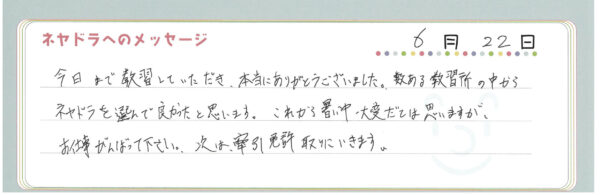 ネヤドラへのメッセージ
6月22日
今日まで教習していただき、本当にありがとうございました。数ある教習所の中から
ネヤドラを選んで良かったと思います。これから暑い中、大変だとは思いますが、
お仕事がんばって下さい。次は、牽引免許取りにいきます。